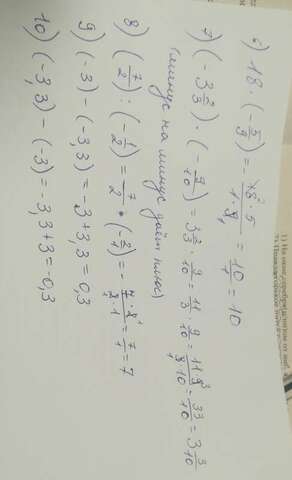 6) 18 · (-5/9) = - 18²·5/1·9₁ = 10/1 = 10
7) (-3 2/3) · (-9/10) = 3 2/3 · 9/10 = 11/3 · 9/10 = 11·9³/₁3·10 = 33/10 = 3 3/10
(минус на минус даёт плюс)
8) (7/2) : (-1/2) = 7/2 · (-2/1) = - 7·2¹/₁2·1 = 7/1 = 7
9) (-3) - (-3,3) = -3+3,3 = 0,3
10) (-3,3) - (-3) = -3,3+3 = -0,3